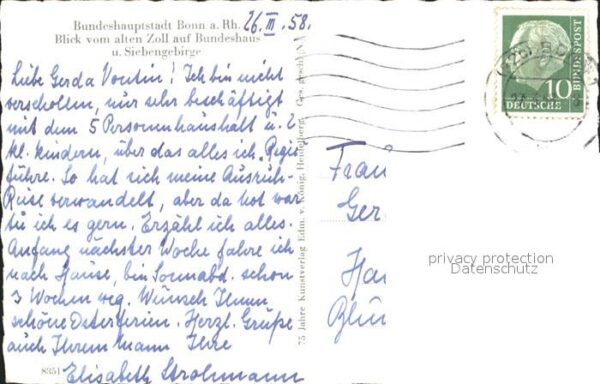 Bundeshauptstadt Bonn a. Rh.
Blick vom alten Zoll auf Bundeshaus
u. Siebengebirge
26. III. 58.
Liebe Gerda Voutin! Ich bin nicht
verschollen, nur sehr beschäftigt
mit dem 5 Personenhaushalt u. 2
kl. Kindern, über das alles ich „Regie"
führe. So hat sich meine Ausruh-
Reise verwandelt, aber da tut
tu ich es gern. Erzähl ich alles.
Anfang nächster Woche fahre ich
nach Hause, bin Sonnabd. schon
3 Wochen weg. Wünsch Ihnen
schöne Osterferien. Herzl. Grüße
auch Ihrem Mann Ihre
Elisabeth Strohmann
8351
75 Jahre Kunstverlag Edm. v. König, Heidelberg
Ges. gesch.
10
DEUTSCHE
BUNDESPOST
Frau
Ger
Ha
Blu
privacy protection
Datenschutz